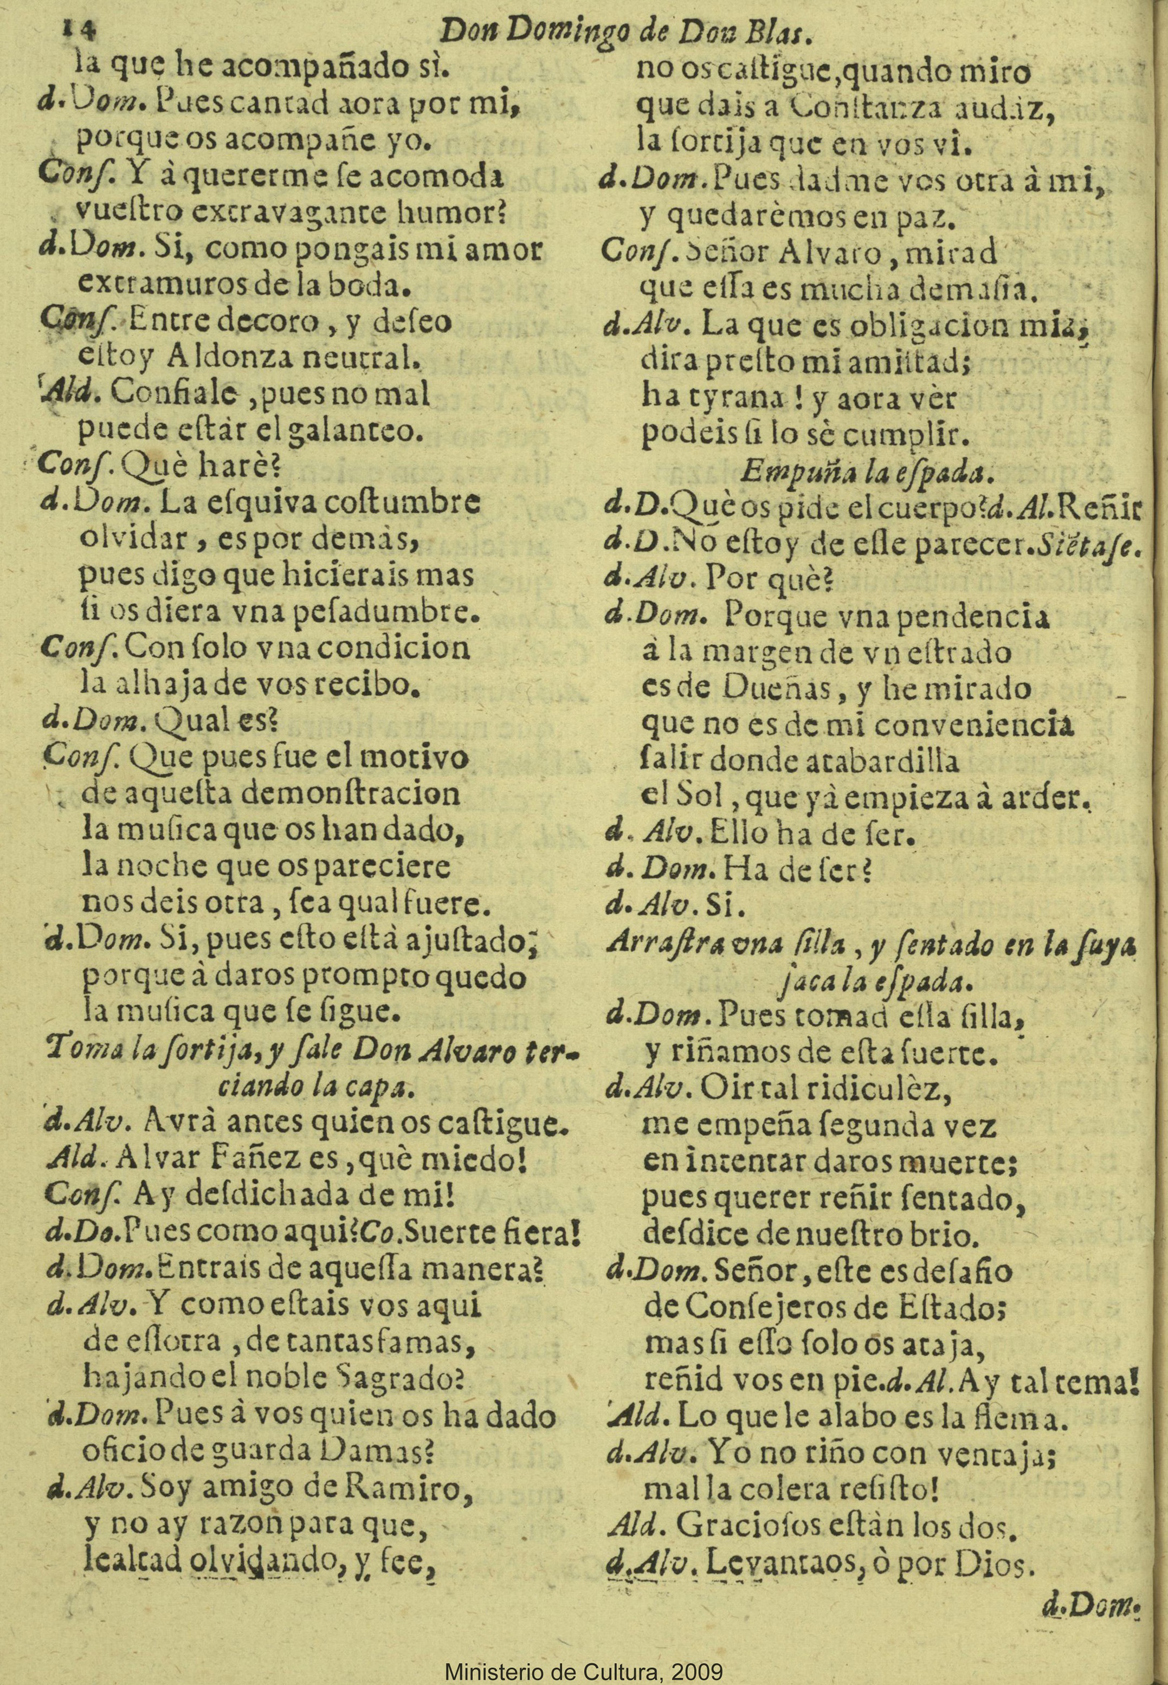 14 Don Domingo de Don Blas.
la que he acompañado sì.
d.Dom. Pues cantad aora por mi,
porque os acompañe yo.
Conſ. Y à quererme ſe acomoda
vueſtro extravagante humor?
d.Dom. Si, como pongais mi amor
extramuros de la boda.
Conſ. Entre decoro, y deſeo
eſtoy Aldonza neutral.
Ald. Confiale, pues no mal
puede eſtár el galanteo.
Conſ. Què harè?
d.Dom. La eſquiva coſtumbre
olvidar, es por demàs,
pues digo que hicierais mas
ſi os diera vna peſadumbre.
Conſ. Con ſolo vna condicion
la alhaja de vos recibo.
d.Dom. Qual es?
Conſ. Que pues fue el motivo
de aqueſta demonſtracion
la muſica que os han dado,
la noche que os pareciere
nos deis otra, ſea qual fuere.
d.Dom. Si, pues eſto eſtá ajuſtado;
porque à daros prompto quedo
la muſica que ſe ſigue.
Toma la ſortija, y ſale Don Alvaro ter-
ciando la capa.
d.Alv. Avrà antes quien os caſtigue.
Ald. Alvar Fañez es, què miedo!
Conſ. Ay deſdichada de mi!
d.Do. Pues como aqui? Co. Suerte fiera!
d.Dom. Entrais de aqueſſa manera?
d.Alv. Y como eſtais vos aqui
de eſſotra, de tantas famas,
hajando el noble Sagrado?
d.Dom. Pues à vos quien os ha dado
oficio de guarda Damas?
d.Alv. Soy amigo de Ramiro,
y no ay razon para que,
lealtad olvidando, y fee,
no os caſtigue, quando miro
que dais a Conſtanza audáz,
la ſortija que en vos vi.
d.Dom. Pues dadme vos otra à mi,
y quedarèmos en paz.
Conſ. Señor Alvaro, mirad
que eſſa es mucha demaſia.
d.Alv. La que es obligacion mia,
dira preſto mi amiſtad;
ha tyrana! y aora vèr
podeis ſi lo sè cumplir.
Empuña la eſpada.
d.D. Què os pide el cuerpo? d.Al. Reñir
d.D. No eſtoy de eſſe parecer. Siẽtaſe.
d.Alv. Por què?
d.Dom. Porque vna pendencia
à la margen de vn eſtrado
es de Dueñas, y he mirado
que no es de mi conveniencia
ſalir donde atabardilla
el Sol, que yà empieza à arder.
d. Alv. Ello ha de ſer.
d. Dom. Ha de ſer?
d. Alv. Si.
Arraſtra vna ſilla, y ſentado en la ſuya
ſaca la eſpada.
d.Dom. Pues tomad eſſa ſilla,
y riñamos de eſta ſuerte.
d.Alv. Oir tal ridiculèz,
me empeña ſegunda vez
en intentar daros muerte;
pues querer reñir ſentado,
deſdice de nueſtro brio.
d.Dom. Señor, eſte es deſafio
de Conſejeros de Eſtado;
mas ſi eſſo ſolo os ataja,
reñid vos en pie. d.Al. Ay tal tema!
Ald. Lo que le alabo es la flema.
d.Alv. Yo no riño con ventaja;
mal la colera reſiſto!
Ald. Gracioſos eſtàn los dos.
d.Alv. Levantaos, ò por Dios.
d.Dom.
Ministerio de Cultura, 2009